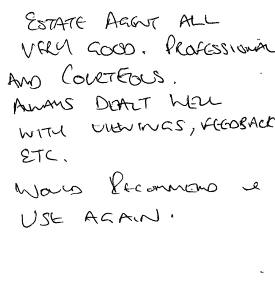 ESTATE AGENT ALL
VERY GOOD. PROFESSIONAL
AND COURTEOUS.
ALWAYS DEALT WELL
WITH VIEWINGS, FEEDBACK
ETC.
WOULD RECOMMEND &
USE AGAIN.